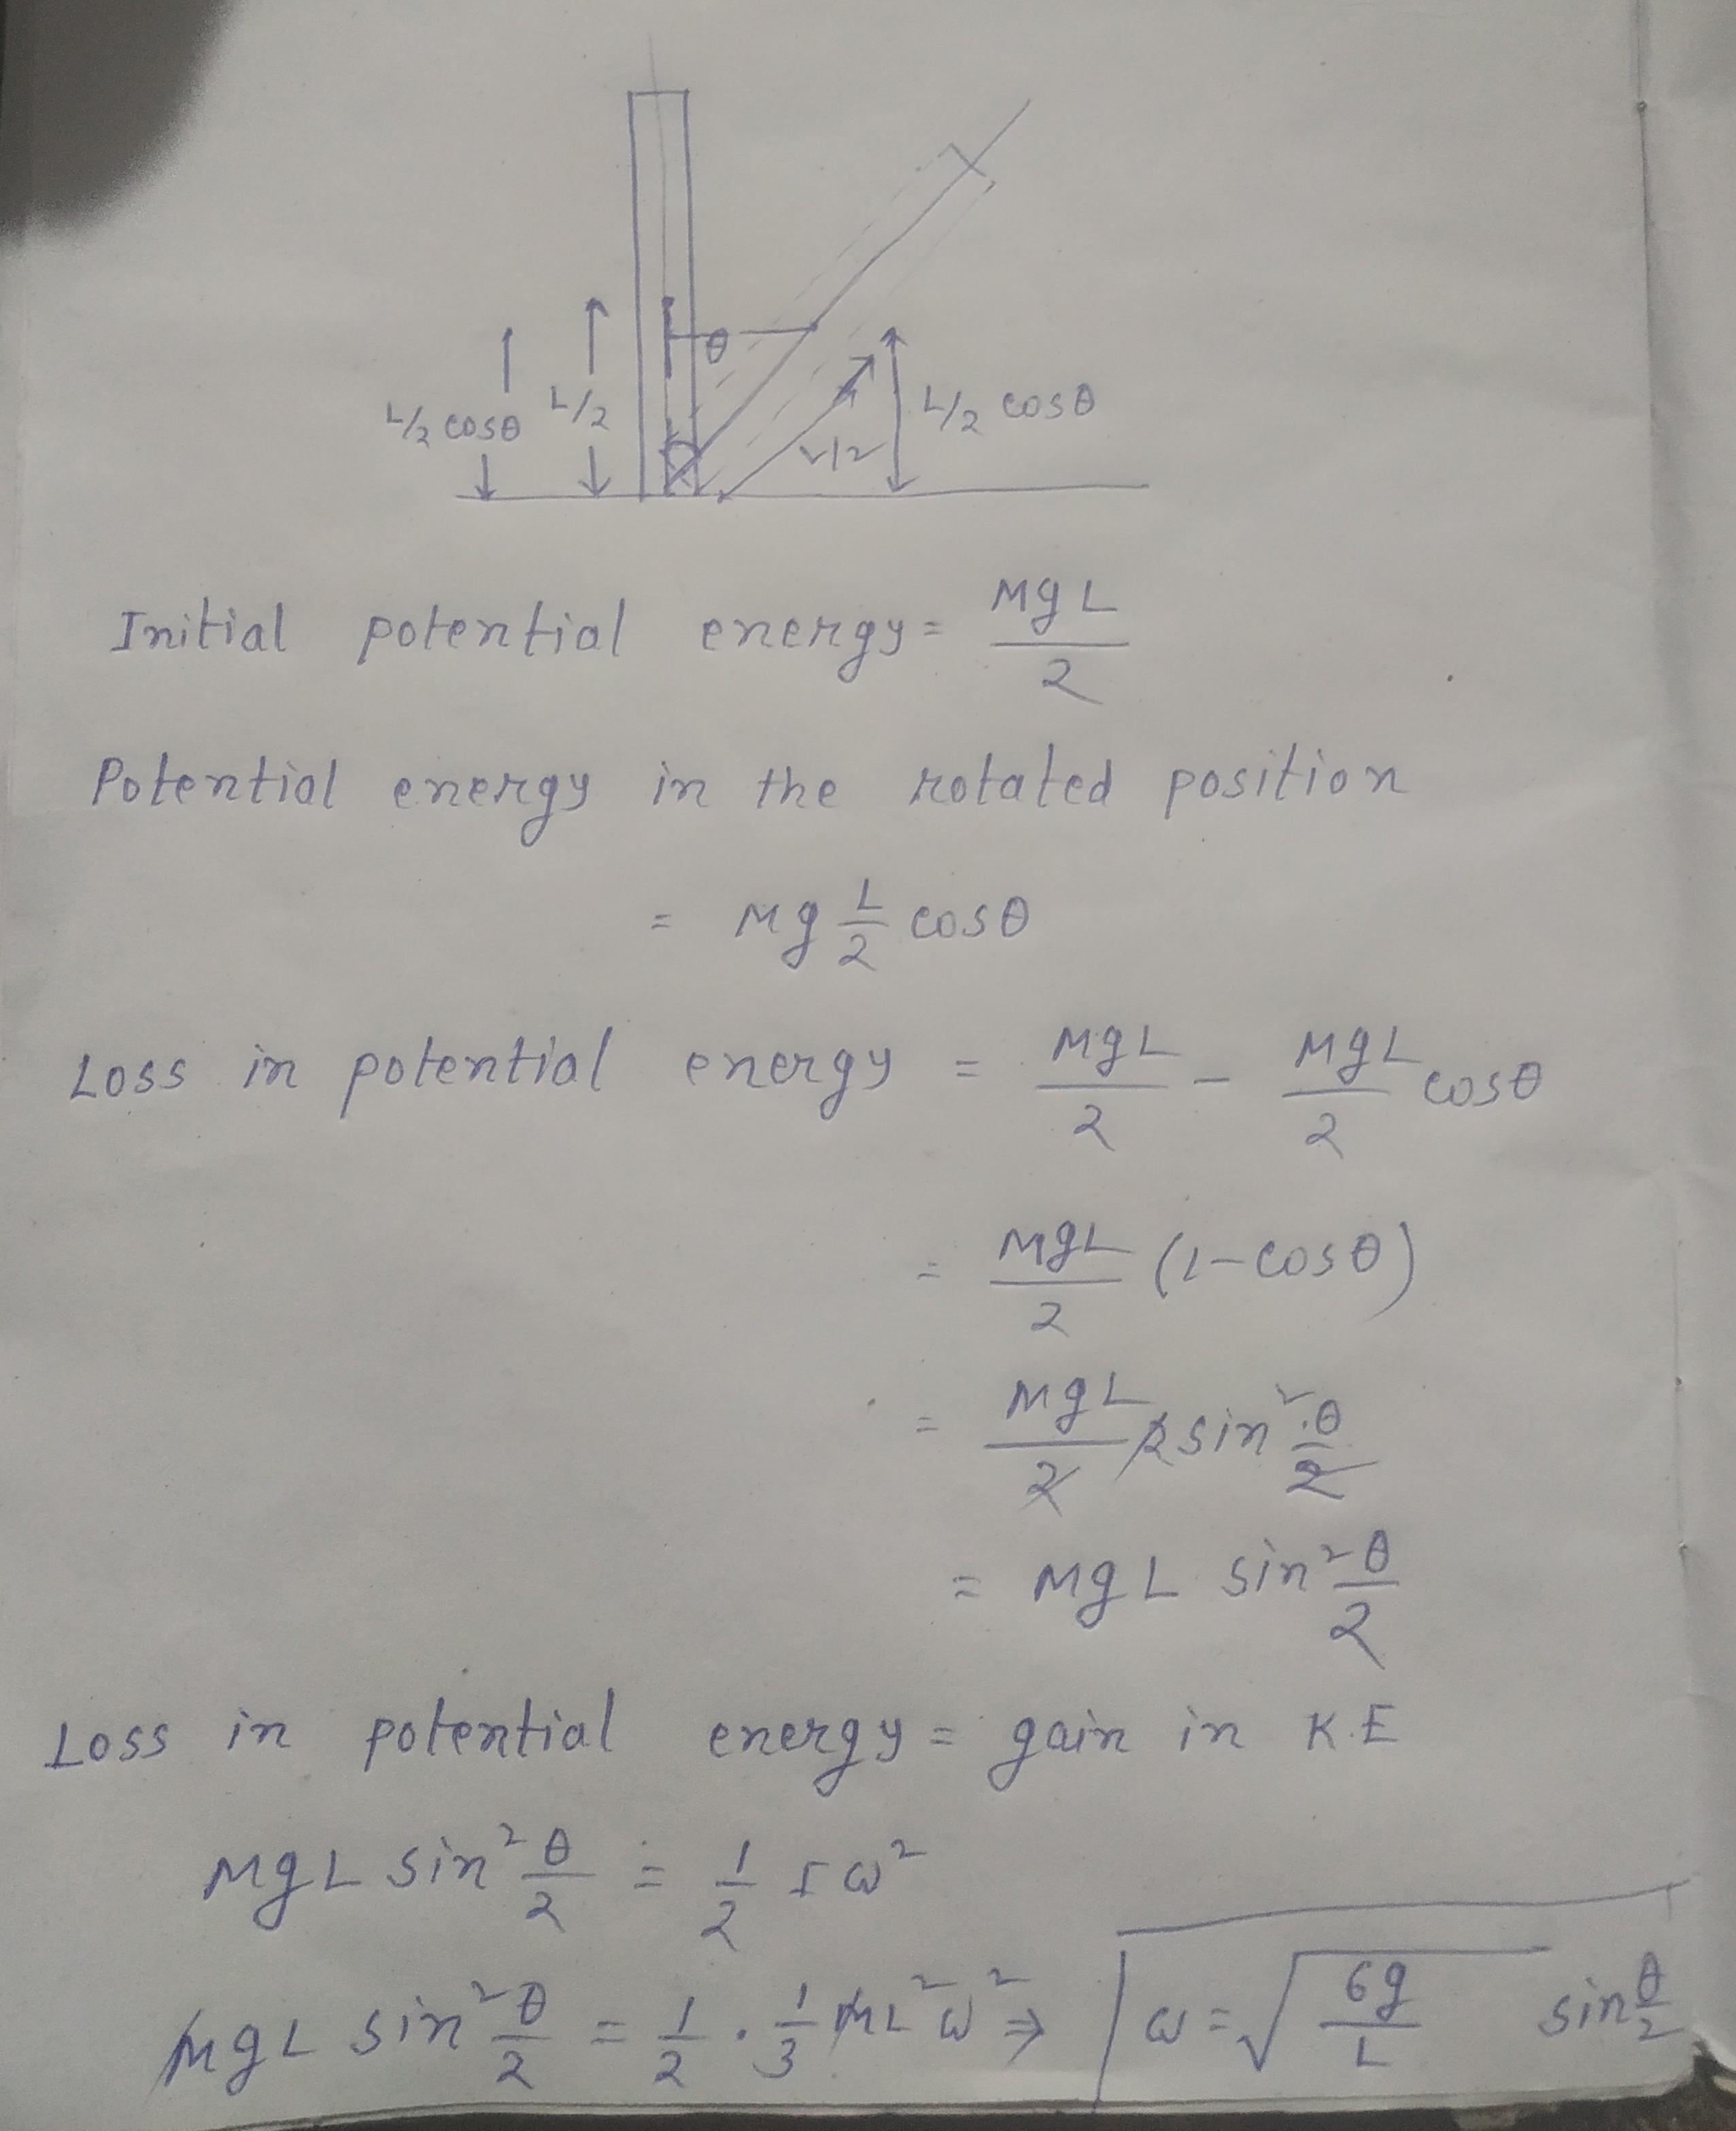 θ
L/2 cosθ
L/2
L/2
L/2 cosθ
Initial potential energy = MgL/2
Potential energy in the rotated position
= Mg L/2 cosθ
Loss in potential energy = MgL/2 - MgL/2 cosθ
= MgL/2 (1-cosθ)
= MgL/2 2 sin² θ/2
= MgL sin² θ/2
Loss in potential energy = gain in K.E
MgL sin² θ/2 = 1/2 I ω²
MgL sin² θ/2 = 1/2 · 1/3 ML² ω² ⇒ ω = √(6g/L) sin θ/2